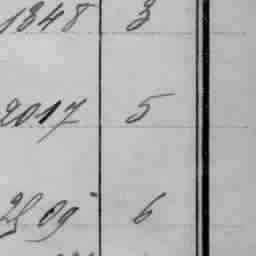 1848 3
2017 5
2509 6